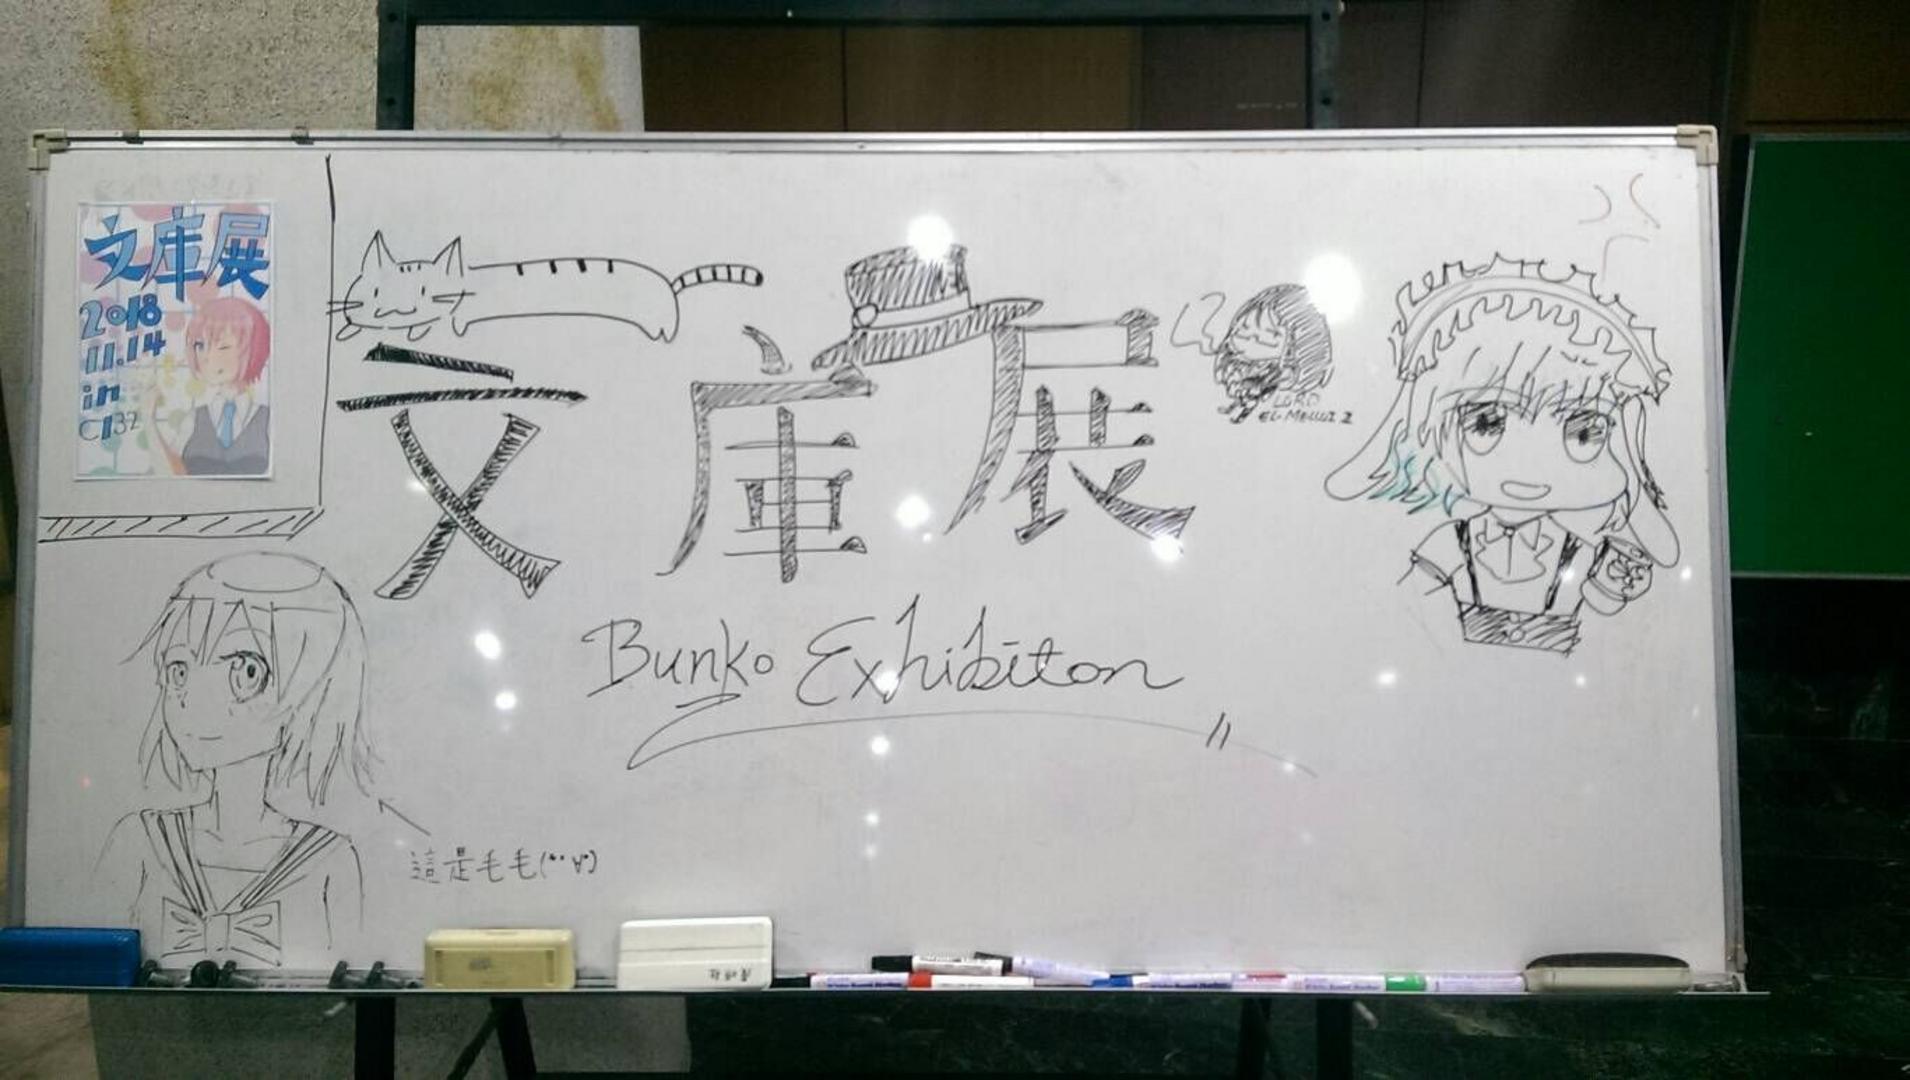 文庫展
2018
11.14
in
C132
文庫展
LORD
EL-MELLOI 2
Bunko Exhibiton
這是毛毛(*°∀°)